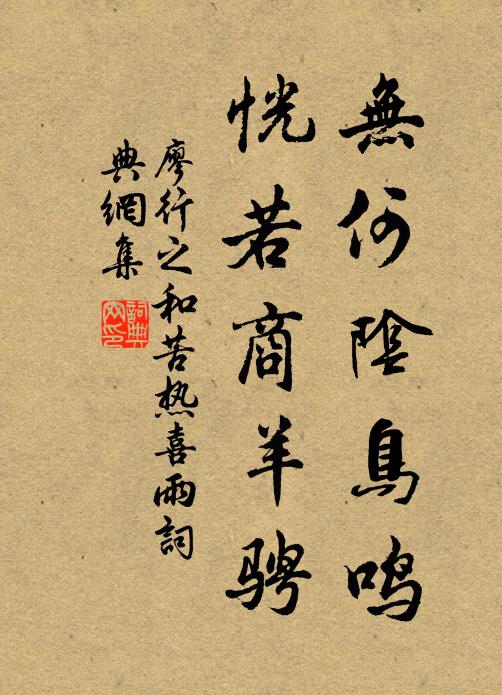 無何陰鳥鳴
恍若商羊騁
廖行之和苦热喜雨詞
典網集
詞典網印